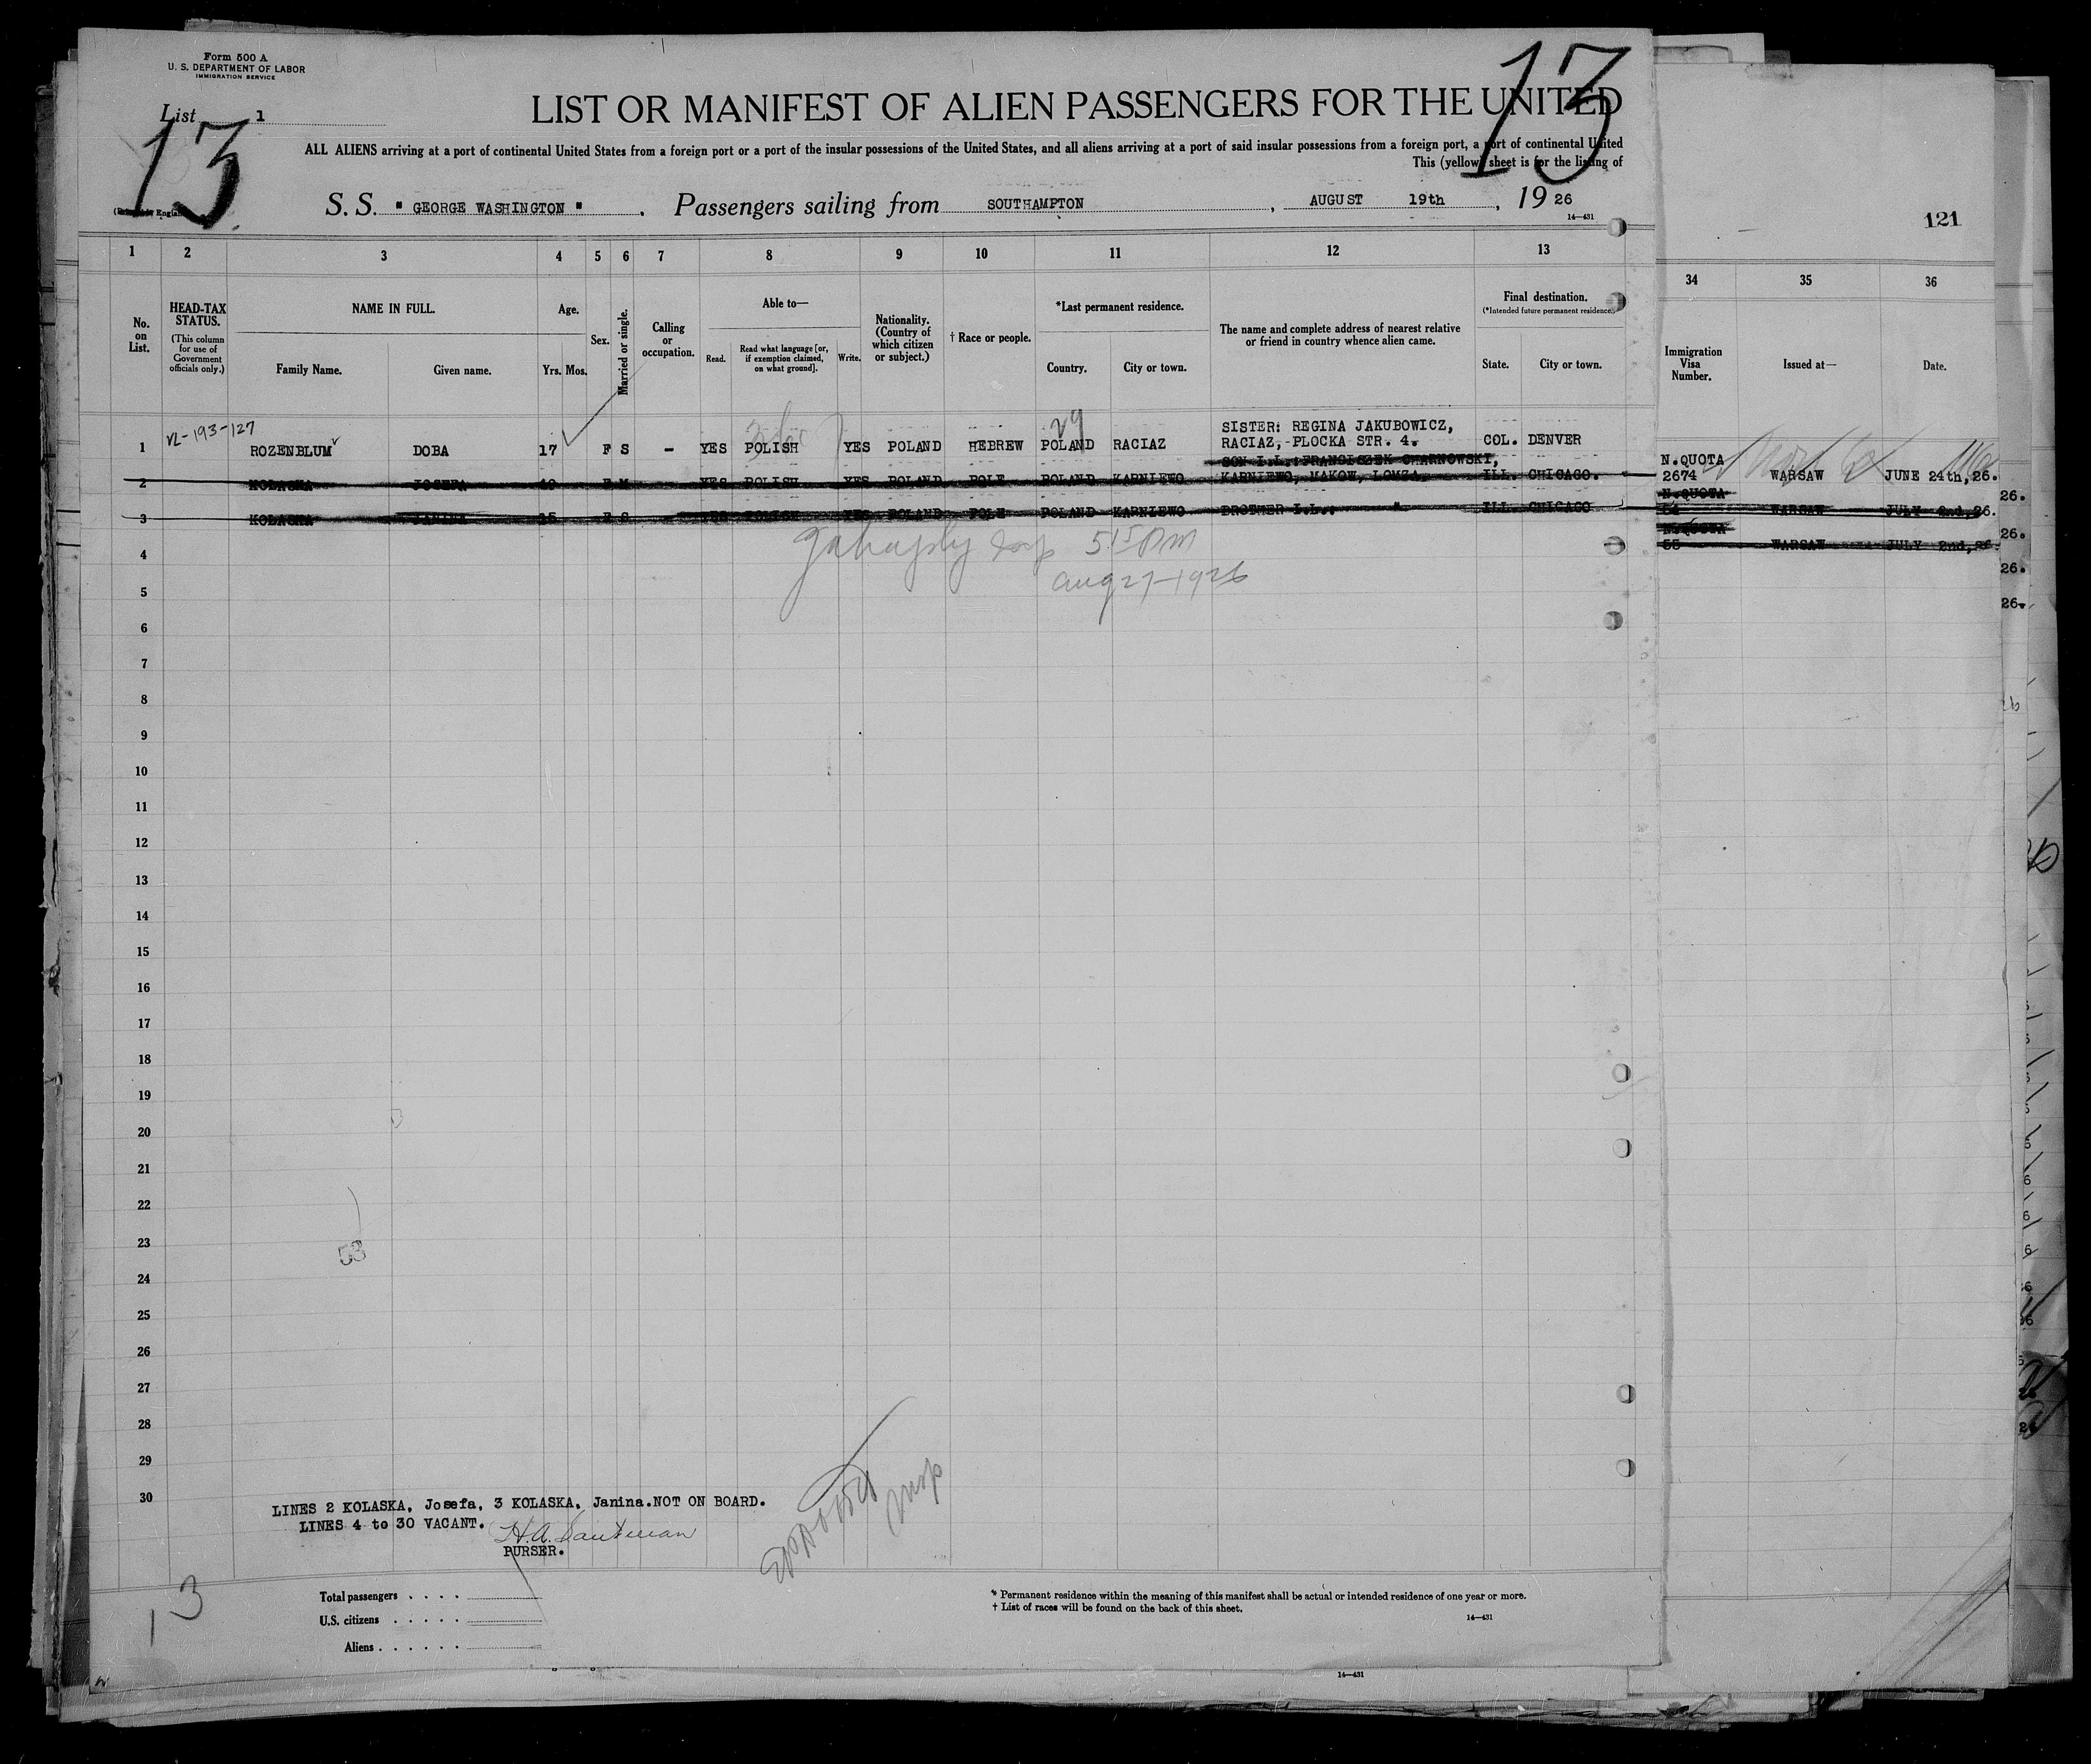 Form 500 A
U. S. DEPARTMENT OF LABOR
IMMIGRATION SERVICE
List 1
13
13
LIST OR MANIFEST OF ALIEN PASSENGERS FOR THE UNITED
ALL ALIENS arriving at a port of continental United States from a foreign port or a port of the insular possessions of the United States, and all aliens arriving at a port of said insular possessions from a foreign port, a port of continental United
This (yellow) sheet is for the listing of
S. S. " GEORGE WASHINGTON " , Passengers sailing from SOUTHAMPTON , AUGUST 19th , 19 26
14—431
121
1 2 3 4 5 6 7 8 9 10 11 12 13 34 35 36
No. on List.
HEAD-TAX STATUS.
(This column for use of Government officials only.)
NAME IN FULL.
Family Name.
Given name.
Age.
Yrs. Mos.
Sex.
Married or single.
Calling or occupation.
Able to—
Read.
Read what language [or, if exemption claimed, on what ground].
Write.
Nationality. (Country of which citizen or subject.)
† Race or people.
*Last permanent residence.
Country.
City or town.
The name and complete address of nearest relative or friend in country whence alien came.
Final destination.
(*Intended future permanent residence.)
State.
City or town.
Immigration Visa Number.
Issued at—
Date.
VL-193-127
29
1 ROZENBLUM DOBA 17 F S - YES POLISH YES POLAND HEBREW POLAND RACIAZ SISTER: REGINA JAKUBOWICZ, RACIAZ,-PLOCKA STR. 4. COL. DENVER
N.QUOTA 2674 WARSAW JUNE 24th,26.
2 KOLASKA JOSEFA F M YES POLISH YES POLAND POLE POLAND KARNIEWO SON I.L.:FRANCISZEK CHARNOWSKI, KARNIEWO, MAKOW, LOMZA ILL. CHICAGO.
N.QUOTA 54 WARSAW JULY 2nd,26.
3 KOLASKA JANINA F S YES POLISH YES POLAND POLE POLAND KARNIEWO BROTHER I.L.: " ILL. CHICAGO
N.QUOTA 55 WARSAW JULY 2nd,26.
26.
26.
26.
26.
4
5 15 PM
5
Aug 27-1926
6
7
8
9
10
11
12
13
14
15
16
17
18
19
20
21
22
23
53
24
25
26
27
28
29
30
LINES 2 KOLASKA, Josefa, 3 KOLASKA, Janina.NOT ON BOARD.
LINES 4 to 30 VACANT.
PURSER.
13
Total passengers . . . .
U.S. citizens . . . . .
Aliens . . . . . .
* Permanent residence within the meaning of this manifest shall be actual or intended residence of one year or more.
† List of races will be found on the back of this sheet.
14—431
14—431